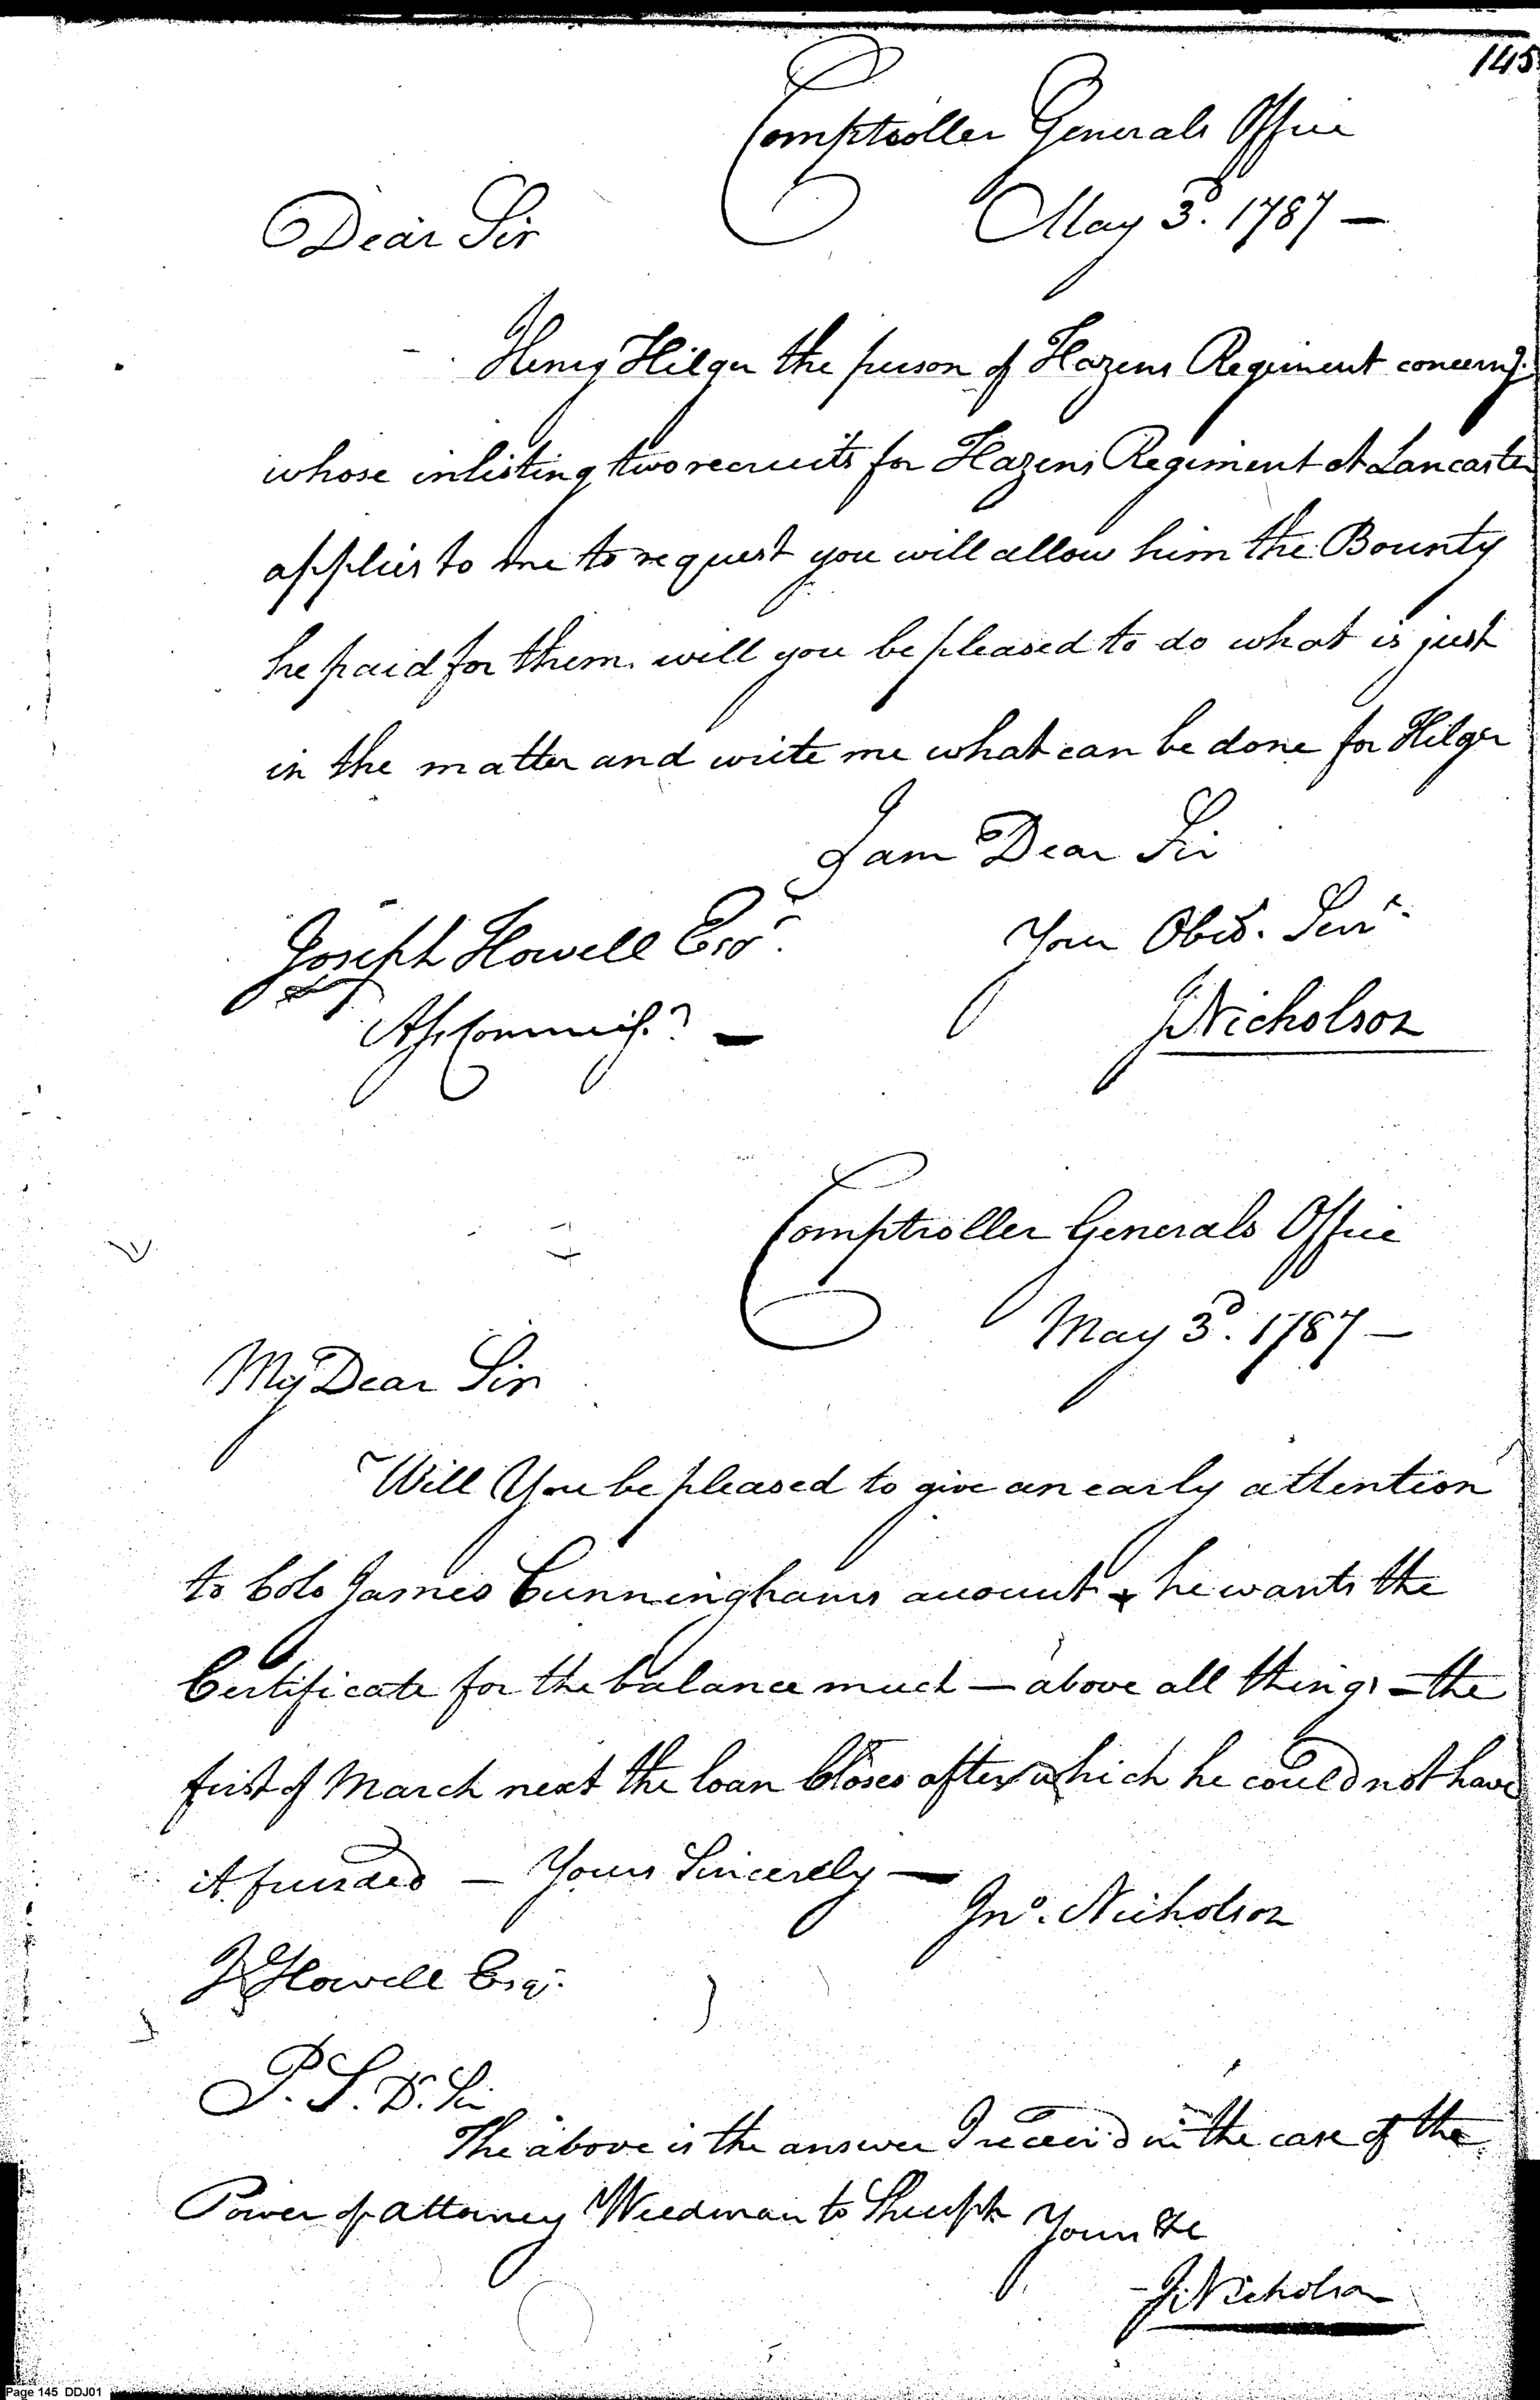 145
Comptroller Generals Office
May 3d. 1787 —
Dear Sir
Henry Hilger the person of Hazens Regiment concerng.
whose inlisting two recruits for Hazens Regiment at Lancaster
applies to me to request you will allow him the Bounty
he paid for them. will you be pleased to do what is just
in the matter and write me what can be done for Hilger
I am Dear Sir
Your Obed. Servt.
Joseph Howell Esqr.
JNicholson
Ass. Commissr. —
Comptroller Generals Office
May 3d. 1787 —
My Dear Sir
Will You be pleased to give an early attention
to Colo James Cunninghams account & he wants the
Certificate for the balance much — above all things — the
first of March next the loan Closes after which he could not have
it funded — Yours Sincerely —
Jno. Nicholson
J Howell Esqr.
P. S. Dr. Sir
The above is the answer I received in the case of the
Power of attorney Weedman to Yours &c
J. Nicholson
Page 145 DDJ01